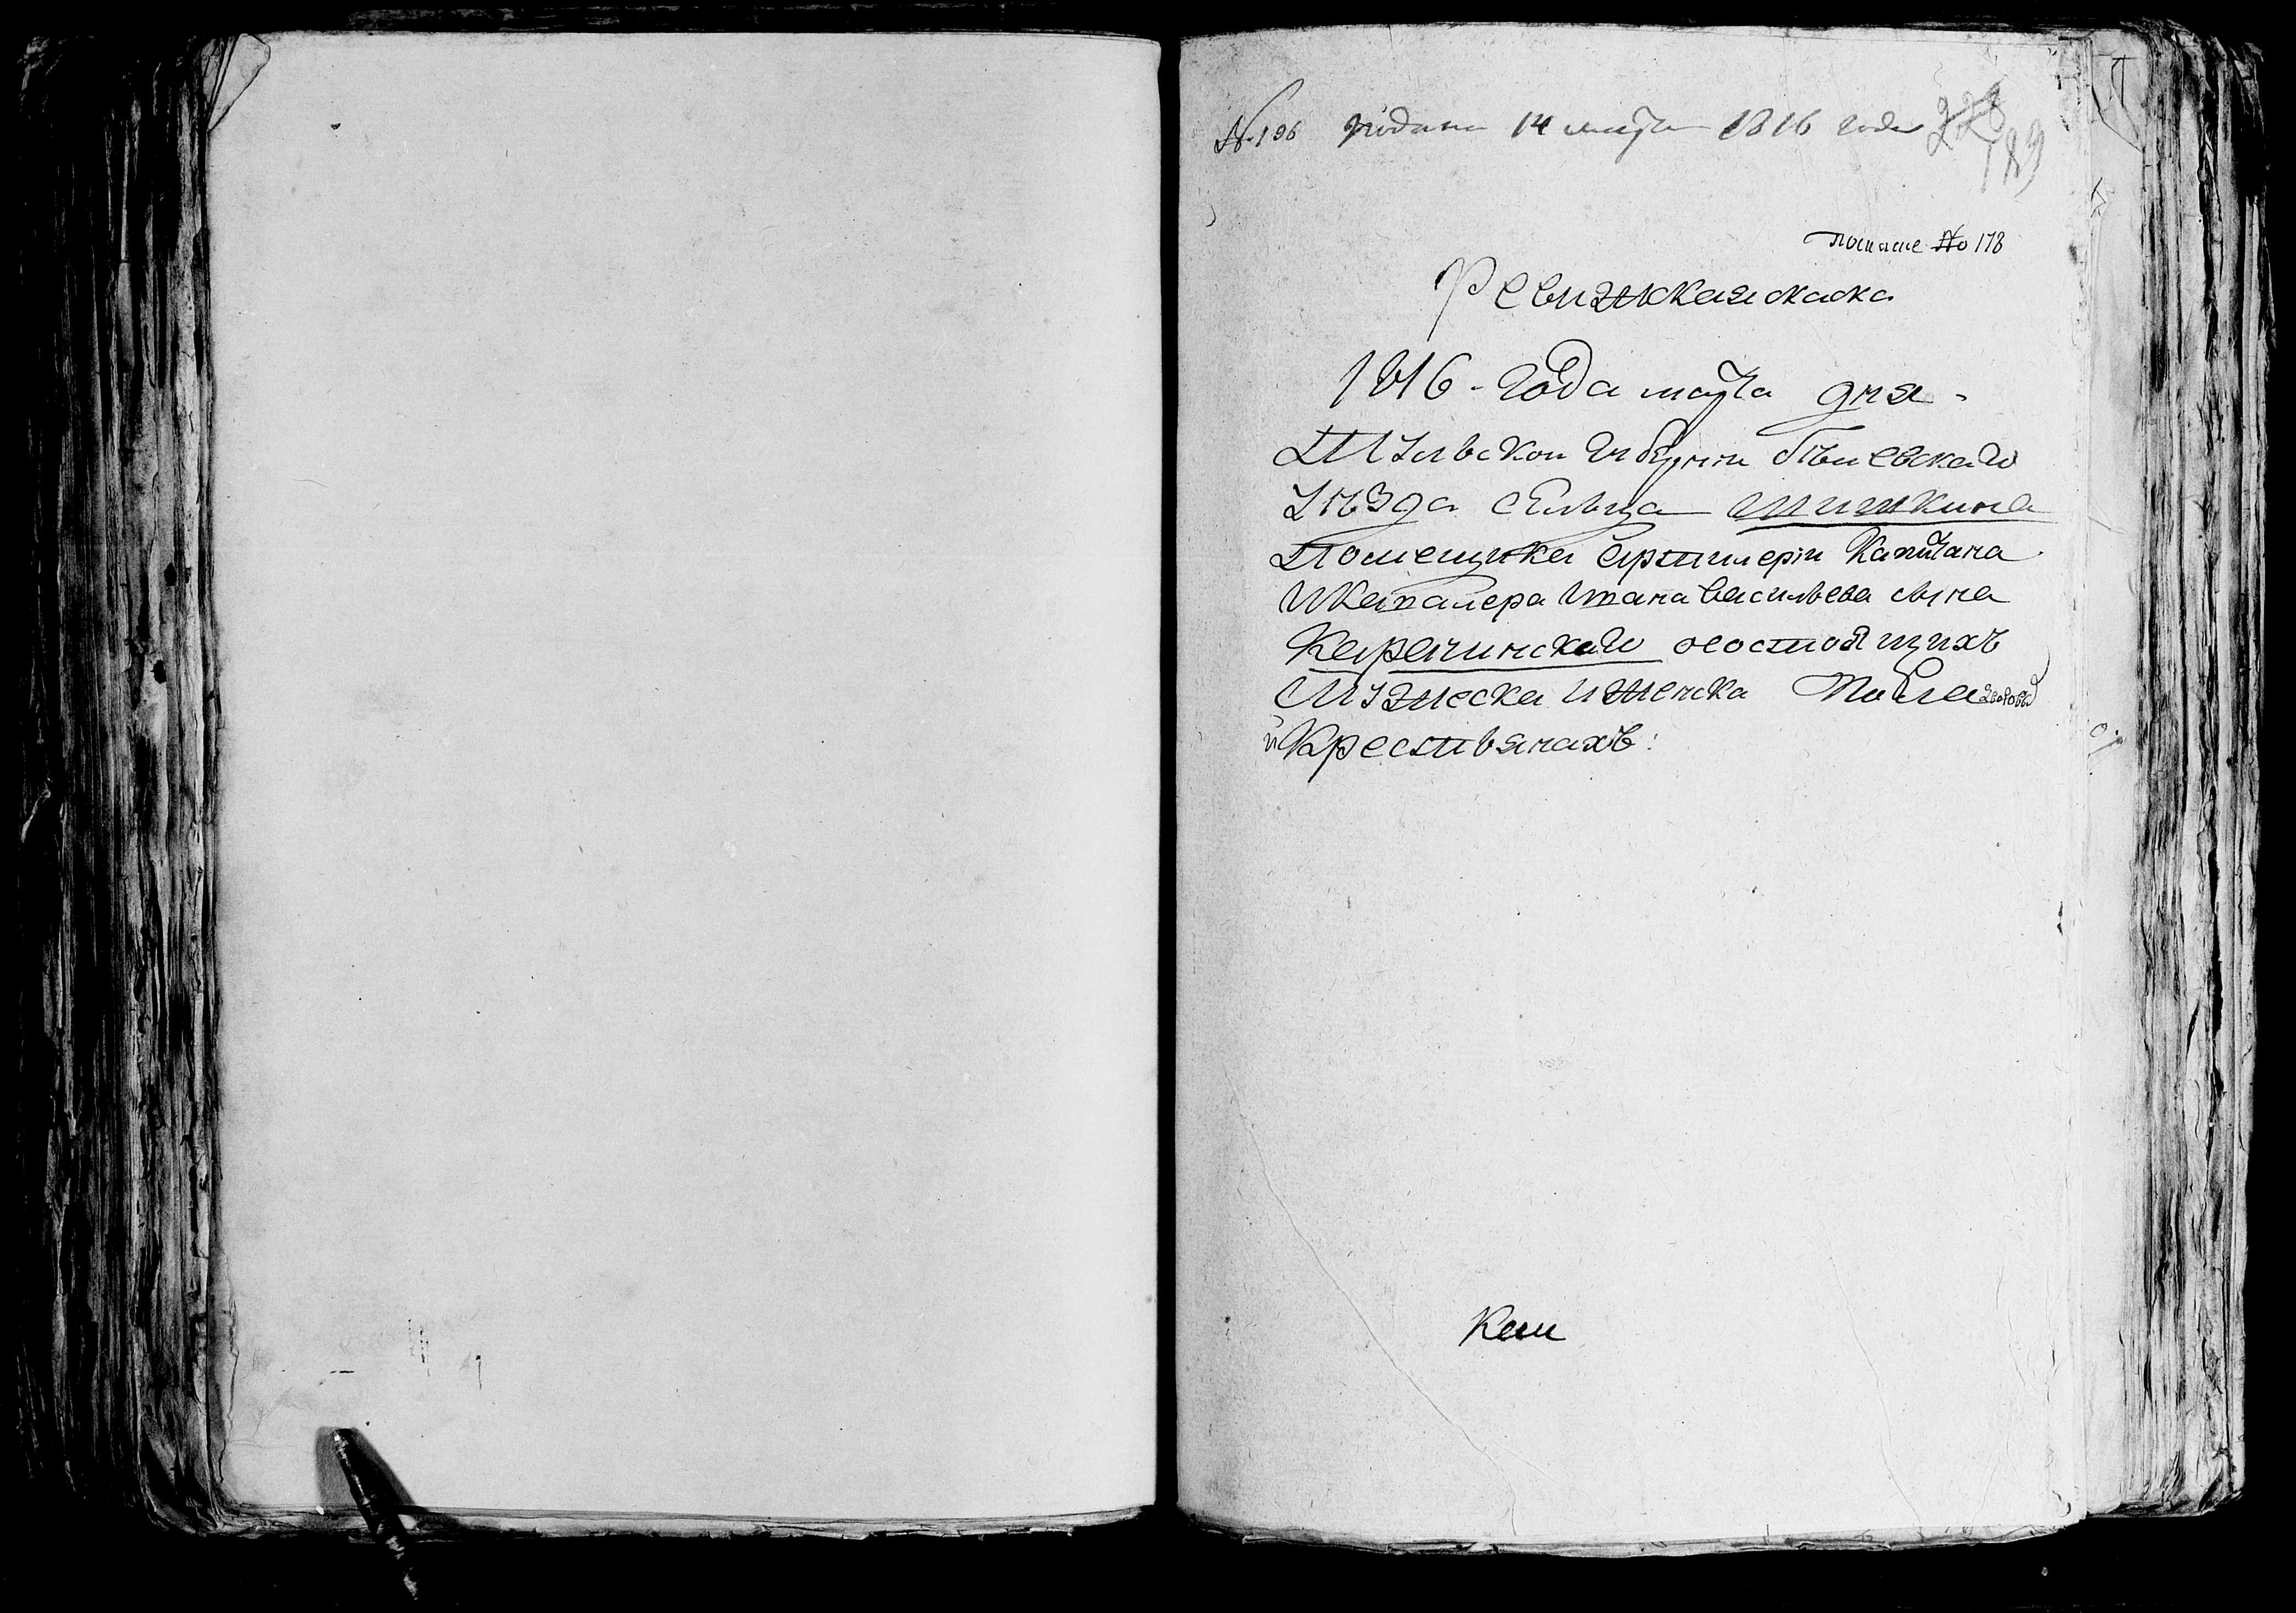 № 196 подана 14 марта 1816 года 228
189
№ 178
Ревизская скаска
1816 - года марта дня -
Тульской губернии Белевскаго
уѣзда сельца Шишкина
Помещика Артилерии Капитана
и Кавалера Ивана Васильева сына
Карачинскаго о состоящихъ
Мужеска и женска пола дворовых
и Крестьянахъ: